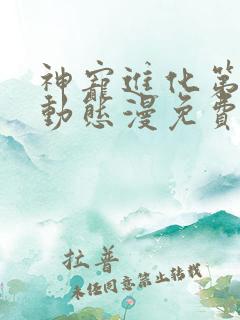 神寵進化第
動態漫免費
拉普
未經同意禁止轉載